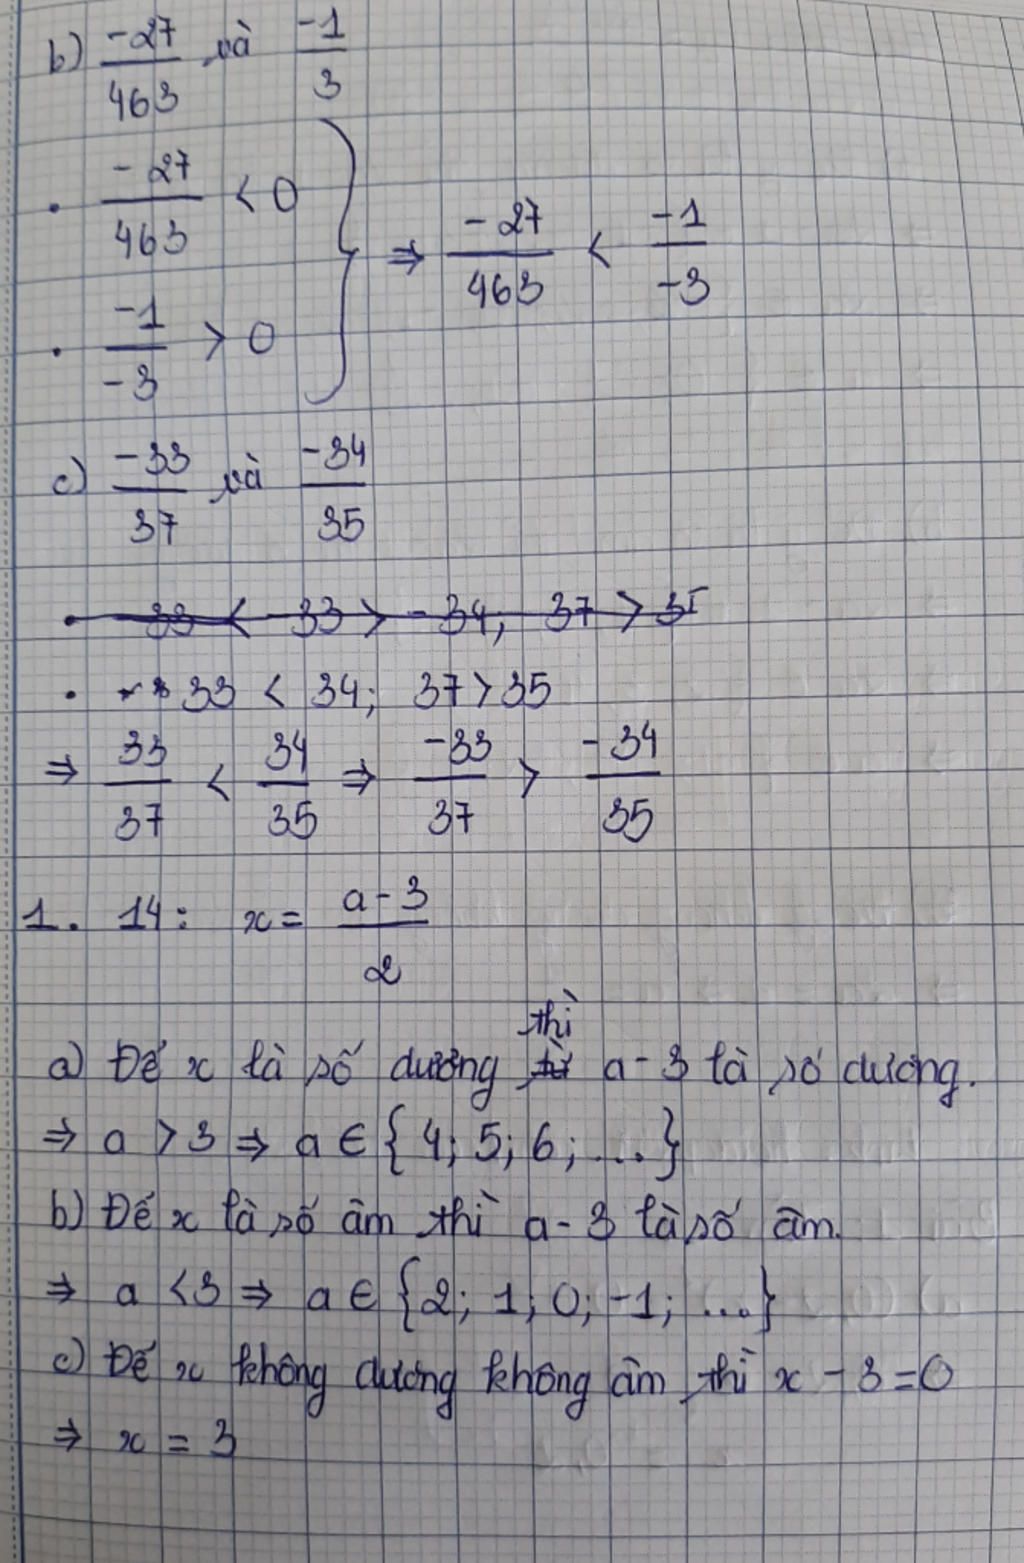 b) -27/463 và -1/3
• -27/463 < 0
• -1/-3 > 0
⇒ -27/463 < -1/-3
c) -33/37 và -34/35
• -33 < -33 > -34; 37 > 35
• 33 < 34; 37 > 35
⇒ 33/37 < 34/35 ⇒ -33/37 > -34/35
1. 14: x = a-3/2
a) Để x là số dương thì a-3 là số dương.
⇒ a > 3 ⇒ a ∈ {4; 5; 6; ...}
b) Để x là số âm thì a-3 là số âm.
⇒ a < 3 ⇒ a ∈ {2; 1; 0; -1; ...}
c) Để x không dương không âm thì x - 3 = 0
⇒ x = 3